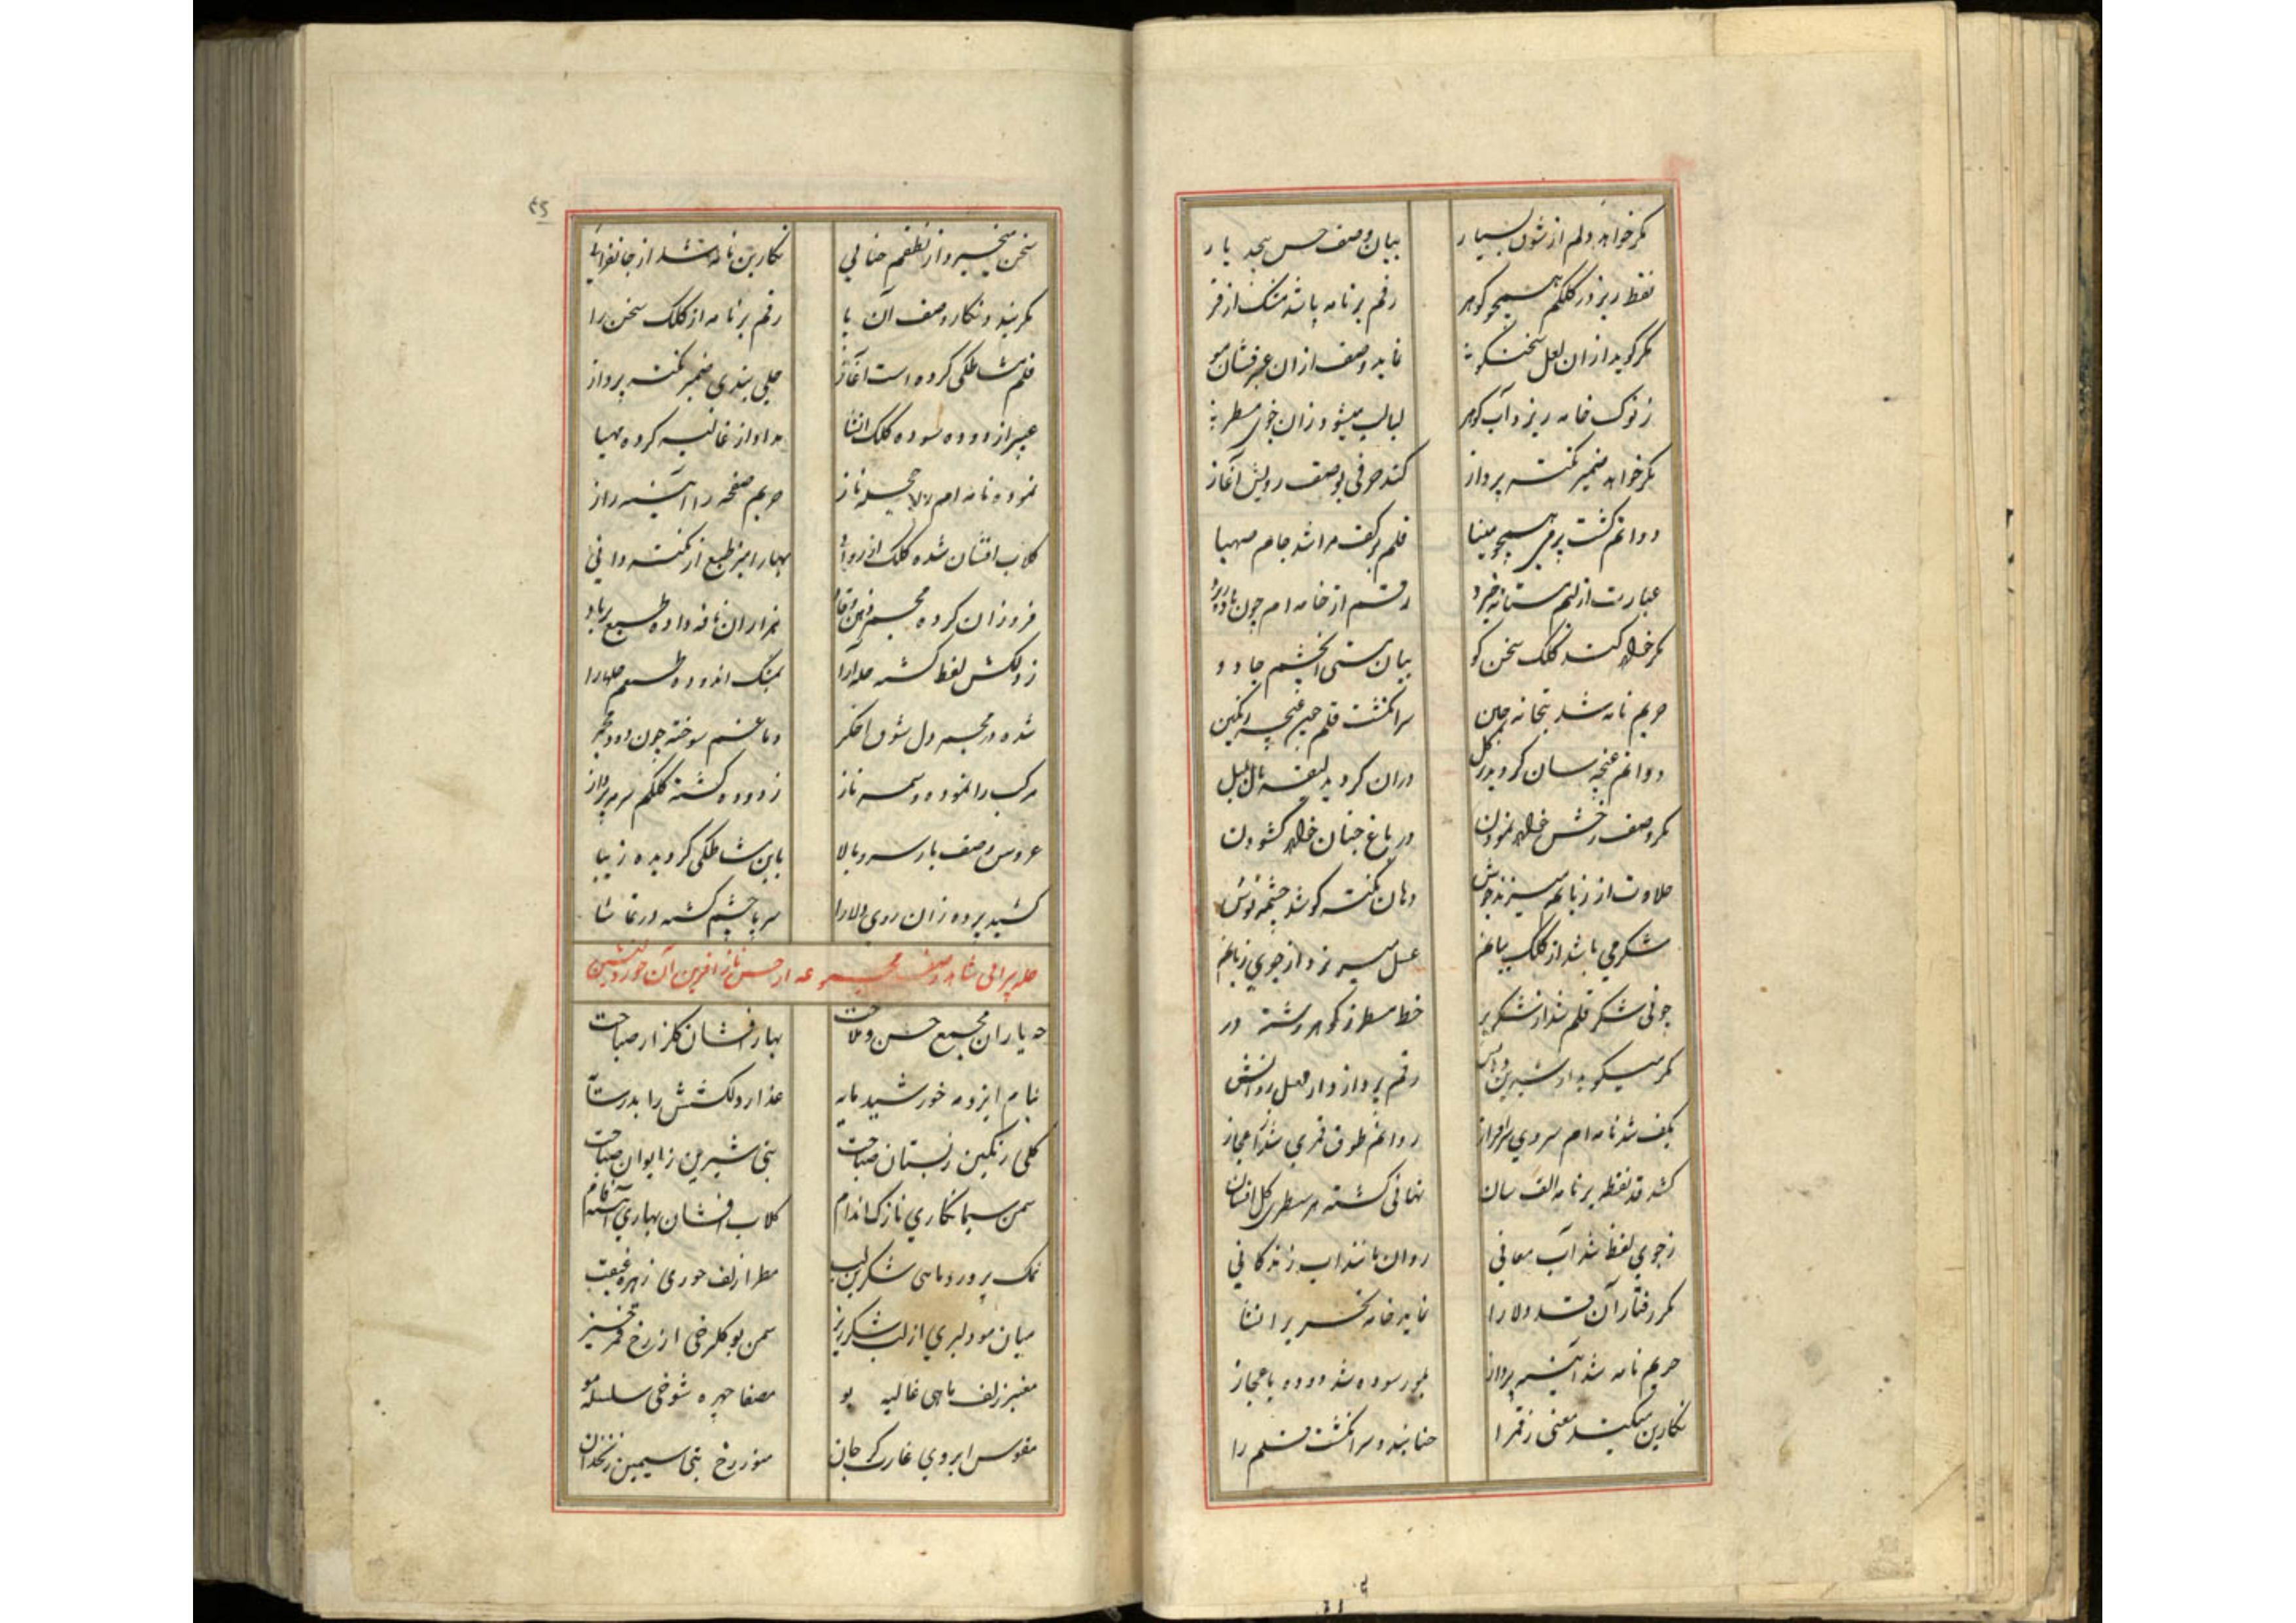 مکر خواهد دلم از شوق بسیار بیان وصف حسن بیحد یار
نقط ریزد ز کلکم همچو کوهر رقم بر نامه باشد مشک از فر
مکر کوید از ان لعل سخنکو نماید وصف از ان عنبر فشان مو
ز نوک خامه ریزد آب کوهر لبالب میشود زان جوی مسطر
مکر خواهد ضمیر نکته پرداز کند حرفی بوصف رویش آغاز
دواتم کشت پر می همچو مینا قلم بر کف مرا شد جام صهبا
عبارت از لبم مستانه خیزد رقم از خامه ام چون باده ریزد
مکر خواهد کند کلک سخن کو بیان مستی آن چشم جادو
حریم نامه شد بتخانه چین سر انکشت قلم چون غنچه رنکین
دواتم غنچه سان کردید پر کل دران کردید لیقه بال بلبل
مکر وصف رخش خواهد نمودن در باغ جنان خواهد کشودن
حلاوت از زبانم میزند جوش دهان نکته کو شد چشمه نوش
شکر می باشد از کلک بیانم عسل میریزد از جوی زبانم
چو نی شکر قلم شد از شکر پر خط مسطر ز کوهر رشته در
مکر میکوید از شیرین رقم پردازد از لعل
بکف شد نامه ام سروی سرافراز دواتم طوق قمری شد باعجاز
کشد قد نقطه بر نامه الف سان نهانی کشته هر سطری کل افشان
ز جوی لفظ شد آب معانی روان مانند آب زندکانی
مکر رفتار آن قد دلارا نماید خامه تحریر انشا
حریم نامه شد آئینه پرداز بلور سوده شد دوده باعجاز
نکارین میکند معنی رقم را حنا بندد سر انکشت قلم را
۴۵
سخن میخیزد از نطقم حنائی نکارین نامه شد از جانفزایی
مکر بندد نکار وصف آن پا رقم بر نامه از کلک سخن را
قلم مشاطکی کرده است آغاز حلی بندی ضمیر نکته پرداز
عبیر از دوده سوده کلک انشا مداد از غالیه کرده مهیا
نموده نامه ام را حجله ناز حریم صفحه را آئینه راز
کلاب افشان شده کلک از روانی بهار امیز طبع از نکته دانی
فروزان کرده مجمر ذهن وقاد هزاران نافه داده طبع بر باد
ز دلکش لفظ کشته حله آرا بمشک اندوده طبعم حلها را
شده در مجمر دل شوق اخکر دماغم سوخته چون دود مجمر
مرکب را نموده وسمه ناز ز دوده کشته کلکم سرمه پرداز
عروس وصف یار سرو بالا باین مشاطکی کردیده زیبا
کشید پرده زان روی دلارا سر پا چشم کشته در تماشا
حله پیرائی شاهد وصف مجموعه از حسن ناز آفرین آن حور دلنشین
مه یاران مجمع حسن و ملاحت بهار افشان کلزار صباحت
بنام ایزد مه خورشید پایه عذار دلکشش را بدر
کلی رنکین ز بستان صباحت بتی شیرین ز ایوان صباحت
سمن سیما نکاری نازک اندام کلاب افشان بهاری
نمک پرورد ماهی شکرین لب مطرا زلف حوری زهره غبغب
میان مو دلبری از لب شکر ریز سمن بو کلرخی از رخ قمر خیز
معنبر زلف ماهی غالیه بو مصفا چهره شوخی سلسله مو
مقوس ابروی غارتکر جان منور رخ بتی سیمین زنخدان